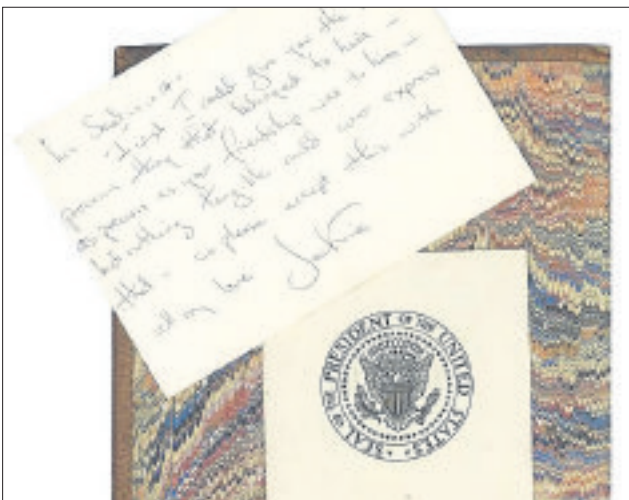 I could give you the
precious thing that belonged to him –
as precious as your friendship was to him –
but nothing tangible could ever express
that – so please accept this with
all my love Jackie
SEAL OF THE PRESIDENT OF THE UNITED STATES